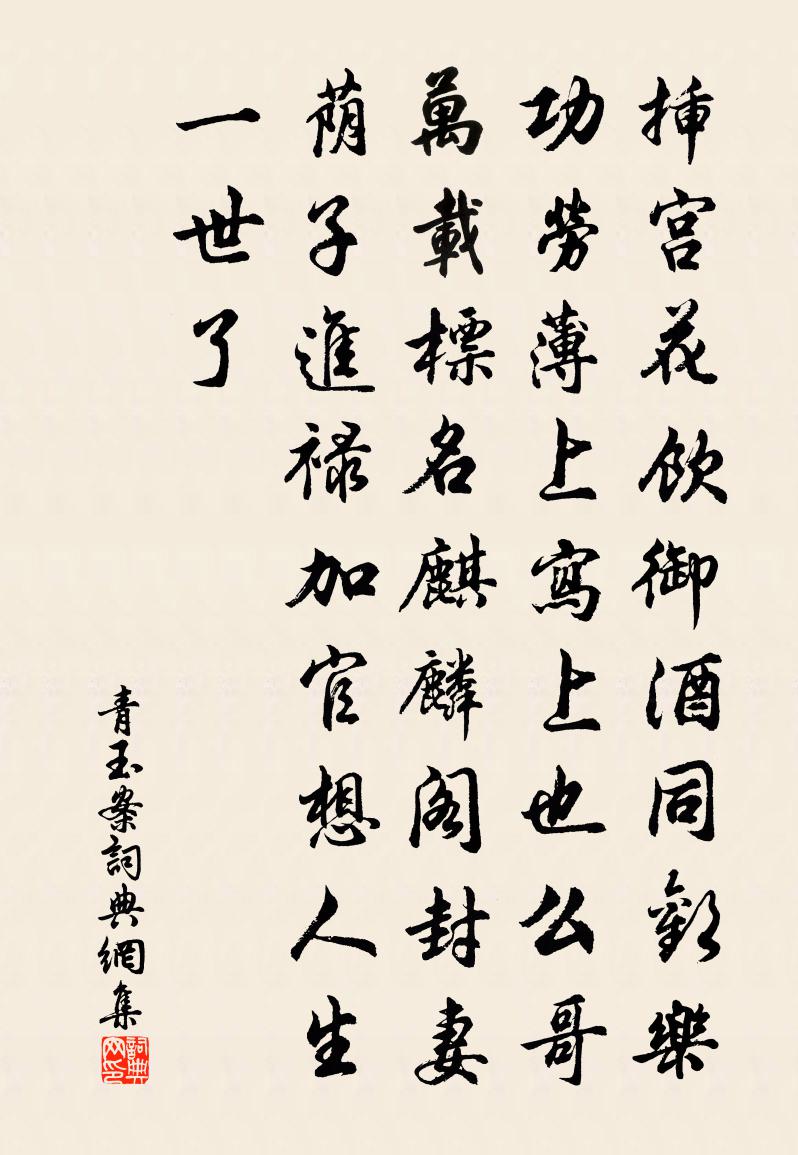 挿宮花飲御酒同歡樂
功勞薄上寫上也么哥
萬載標名麒麟閣封妻
蔭子進禄加官想人生
一世了
青玉案詞典網集
詞典网印